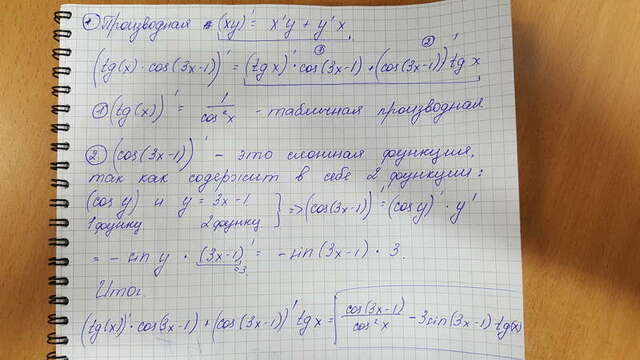 * Производная (xy)' = x'y + y'x
(tg(x) · cos(3x-1))' = (tg x)' · cos(3x-1) + (cos(3x-1))' tg x
① ②
① (tg(x))' = 1/cos²x - табличная производная
② (cos(3x-1))' - это сложная функция,
так как содержит в себе 2 функции:
cos y и y = 3x-1 } => (cos(3x-1))' = (cos y)' · y'
1 функция 2 функция
= - sin y · (3x-1)' = - sin(3x-1) · 3
Итог
(tg(x))' · cos(3x-1) + (cos(3x-1))' tg x = cos(3x-1)/cos²x - 3sin(3x-1) tg(x)